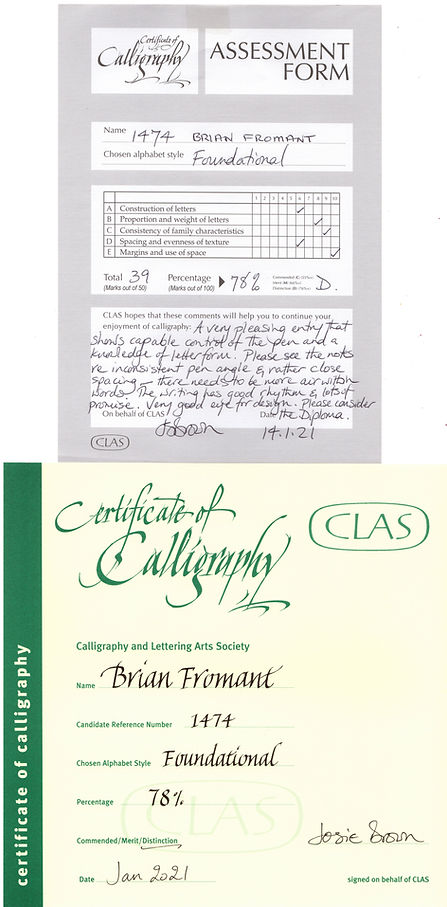 Certificate of
Calligraphy
ASSESSMENT
FORM
Name 1474 BRIAN FROMANT
Chosen alphabet style Foundational
1 2 3 4 5 6 7 8 9 10
A Construction of letters ✓
B Proportion and weight of letters ✓
C Consistency of family characteristics ✓
D Spacing and evenness of texture ✓
E Margins and use of space ✓
Total 39 Percentage 78% D.
(Marks out of 50) (Marks out of 100)
CLAS hopes that these comments will help you to continue your
enjoyment of calligraphy: A very pleasing entry that
shows capable control of the pen and a
knowledge of letterform. Please see the notes
re inconsistent pen angle & rather close
spacing – there needs to be more air within
words. The writing has good rhythm & lots of
promise. Very good eye for design. Please consider
On behalf of CLAS Date the Diploma.
J Brown 14.1.21
CLAS
Certificate of
Calligraphy
CLAS
Calligraphy and Lettering Arts Society
Name Brian Fromant
Candidate Reference Number 1474
Chosen Alphabet Style Foundational
Percentage 78%
CLAS
Commended/Merit/Distinction
Josie Brown
Date Jan 2021
signed on behalf of CLAS
certificate of calligraphy